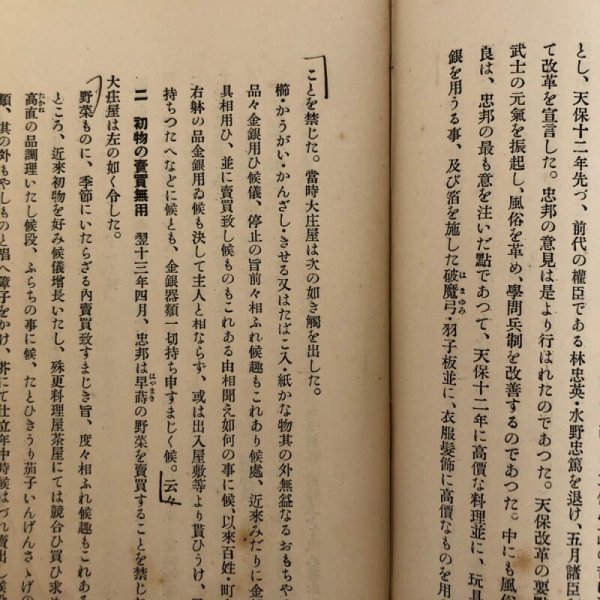 とし、天保十二年先づ、前代の權臣である林忠英・水野忠篤を退け、五月諸臣
て改革を宣言した。忠邦の意見は是より行はれたのであつた。天保改革の要點
武士の元氣を振起し、風俗を革め、學問兵制を改善するのであつた。中にも風俗
良は、忠邦の最も意を注いだ點であつて、天保十二年に高價な料理並に、玩具
銀を用うる事、及び箔を施した破魔弓・羽子板並に、衣服髮飾に高價なものを用
ことを禁じた。當時大庄屋は次の如き觸を出した。
櫛・かうがい・かんざし・きせる又はたばこ入・紙かな物其の外無益なるおもちや
品々金銀用ひ候儀、停止の旨前々相ふれ候趣もこれあり候處、近來みだりに金
具相用ひ、並に賣買致し候ものもこれある由相聞え如何の事に候、以來百姓・町
右躰の品金銀用ゐ候も決して主人と相ならず、或は出入屋敷等より貰ひうけ、
持ちつたへなどに候とも、金銀器類一切持ち申すまじく候。云々
二 初物の賣買無用 翌十三年四月、忠邦は早蒔の野菜を賣買することを禁じ
大庄屋は左の如く令した。
野菜ものに、季節にいたらざる內賣買致すまじき旨、度々相ふれ候趣もこれある
ところ、近來初物を好み候儀增長いたし、殊更料理屋茶屋にては競合ひ買ひ求
高直の品調理いたし候段、ふらちの事に候、たとひきうり茄子いんげんさゝげの
類、其の外もやしものと唱へ障子をかけ、芥にて仕立年中時候はづれ賣出し候